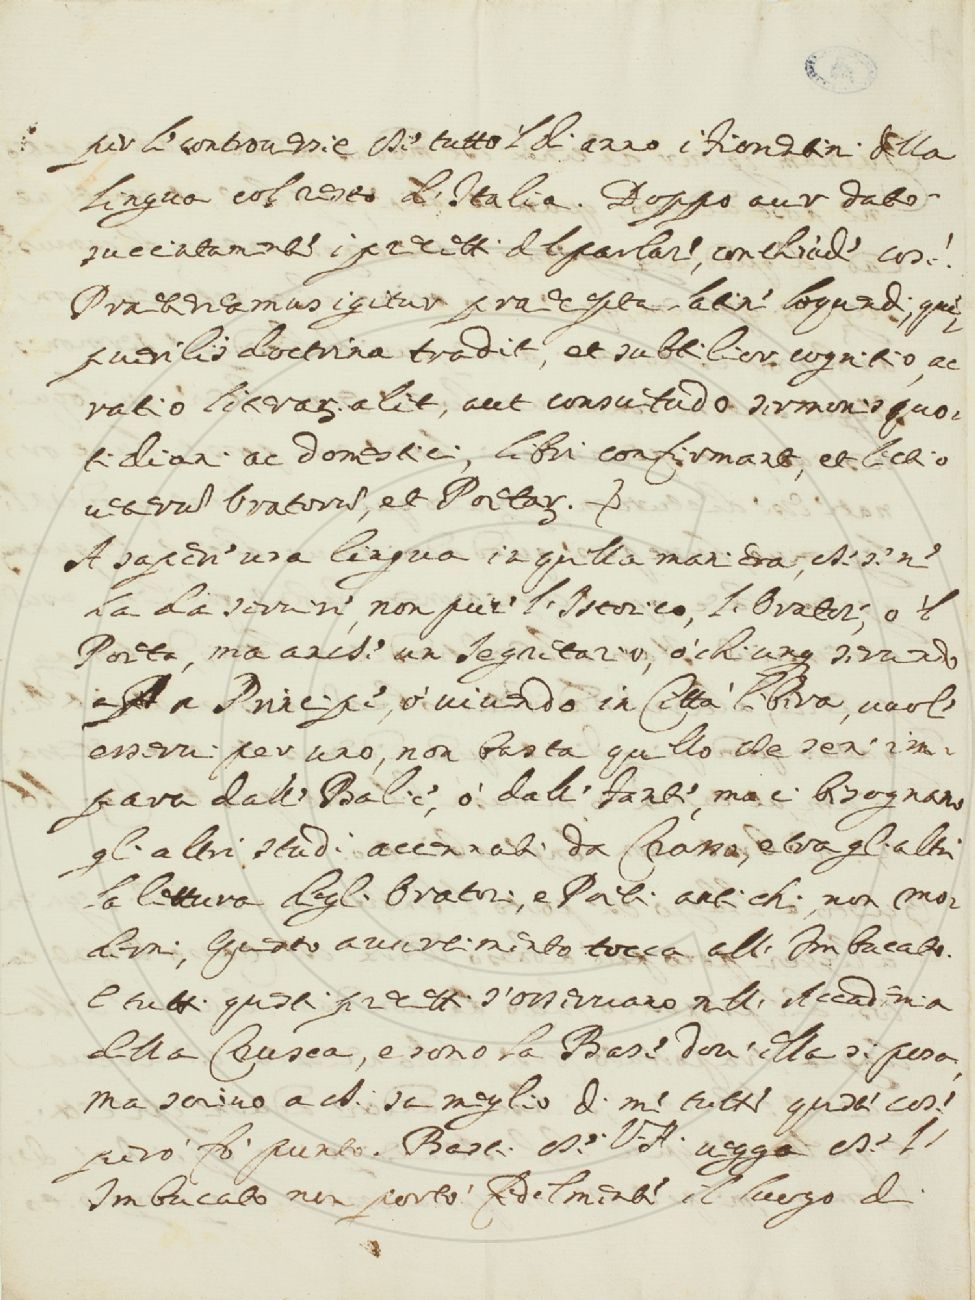 per le controversie che tutto 'l dì anno i Fiorentini della
lingua col resto d'Italia. Doppo aver dato
succintamente i precetti del parlare, conchiude così.
Praetereamus igitur praecepta latine loquendi, quę
puerilis doctrina tradit, et subtilior cognitio, ac
ratio literaꝝ alit, aut consuetudo sermonis quo-
tidiani ac domestici, libri confirmant, et lectio
veterũ Oratorũ, et Poetaꝝ.
A sapere una lingua in quella maniera, che se n'
ha da servire, non pure l'Istorico, l'Oratore, o 'l
Poeta, ma anche un Segretario, o chiunq servendo
a Principe, o vivendo in Città libera, vuole
esservi per uno, non basta quello che se n'im-
para dalle Balie, o dalle Fanti, ma ci bisognano
gli altri studi accennati da Crasso, e tra gli altri
la lettura degli Oratori, e Poeti antichi, non mo-
derni, questo avvertimento tocca all'Imbucato.
E tutti questi precetti s'osservano nell'Accademia
della Crusca, e sono la Base dov'ella si posa,
ma scrivo a chi sa meglio di me tutte queste cose
però fò punto. Basti che V.S. vegga che l'
Imbucato non portò fedelmente il luogo di